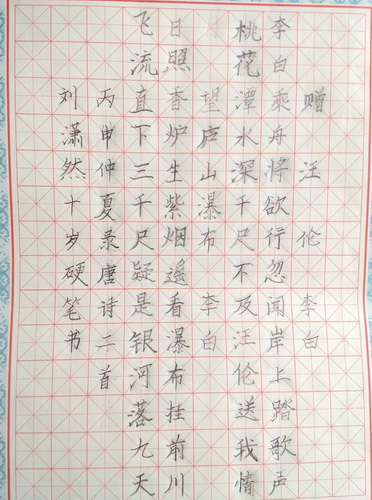 赠汪伦李白
李白乘舟将欲行忽闻岸上踏歌声
桃花潭水深千尺不及汪伦送我情
望庐山瀑布李白
日照香炉生紫烟遥看瀑布挂前川
飞流直下三千尺疑是银河落九天
丙申仲夏录唐诗二首
刘潇然十岁硬笔书